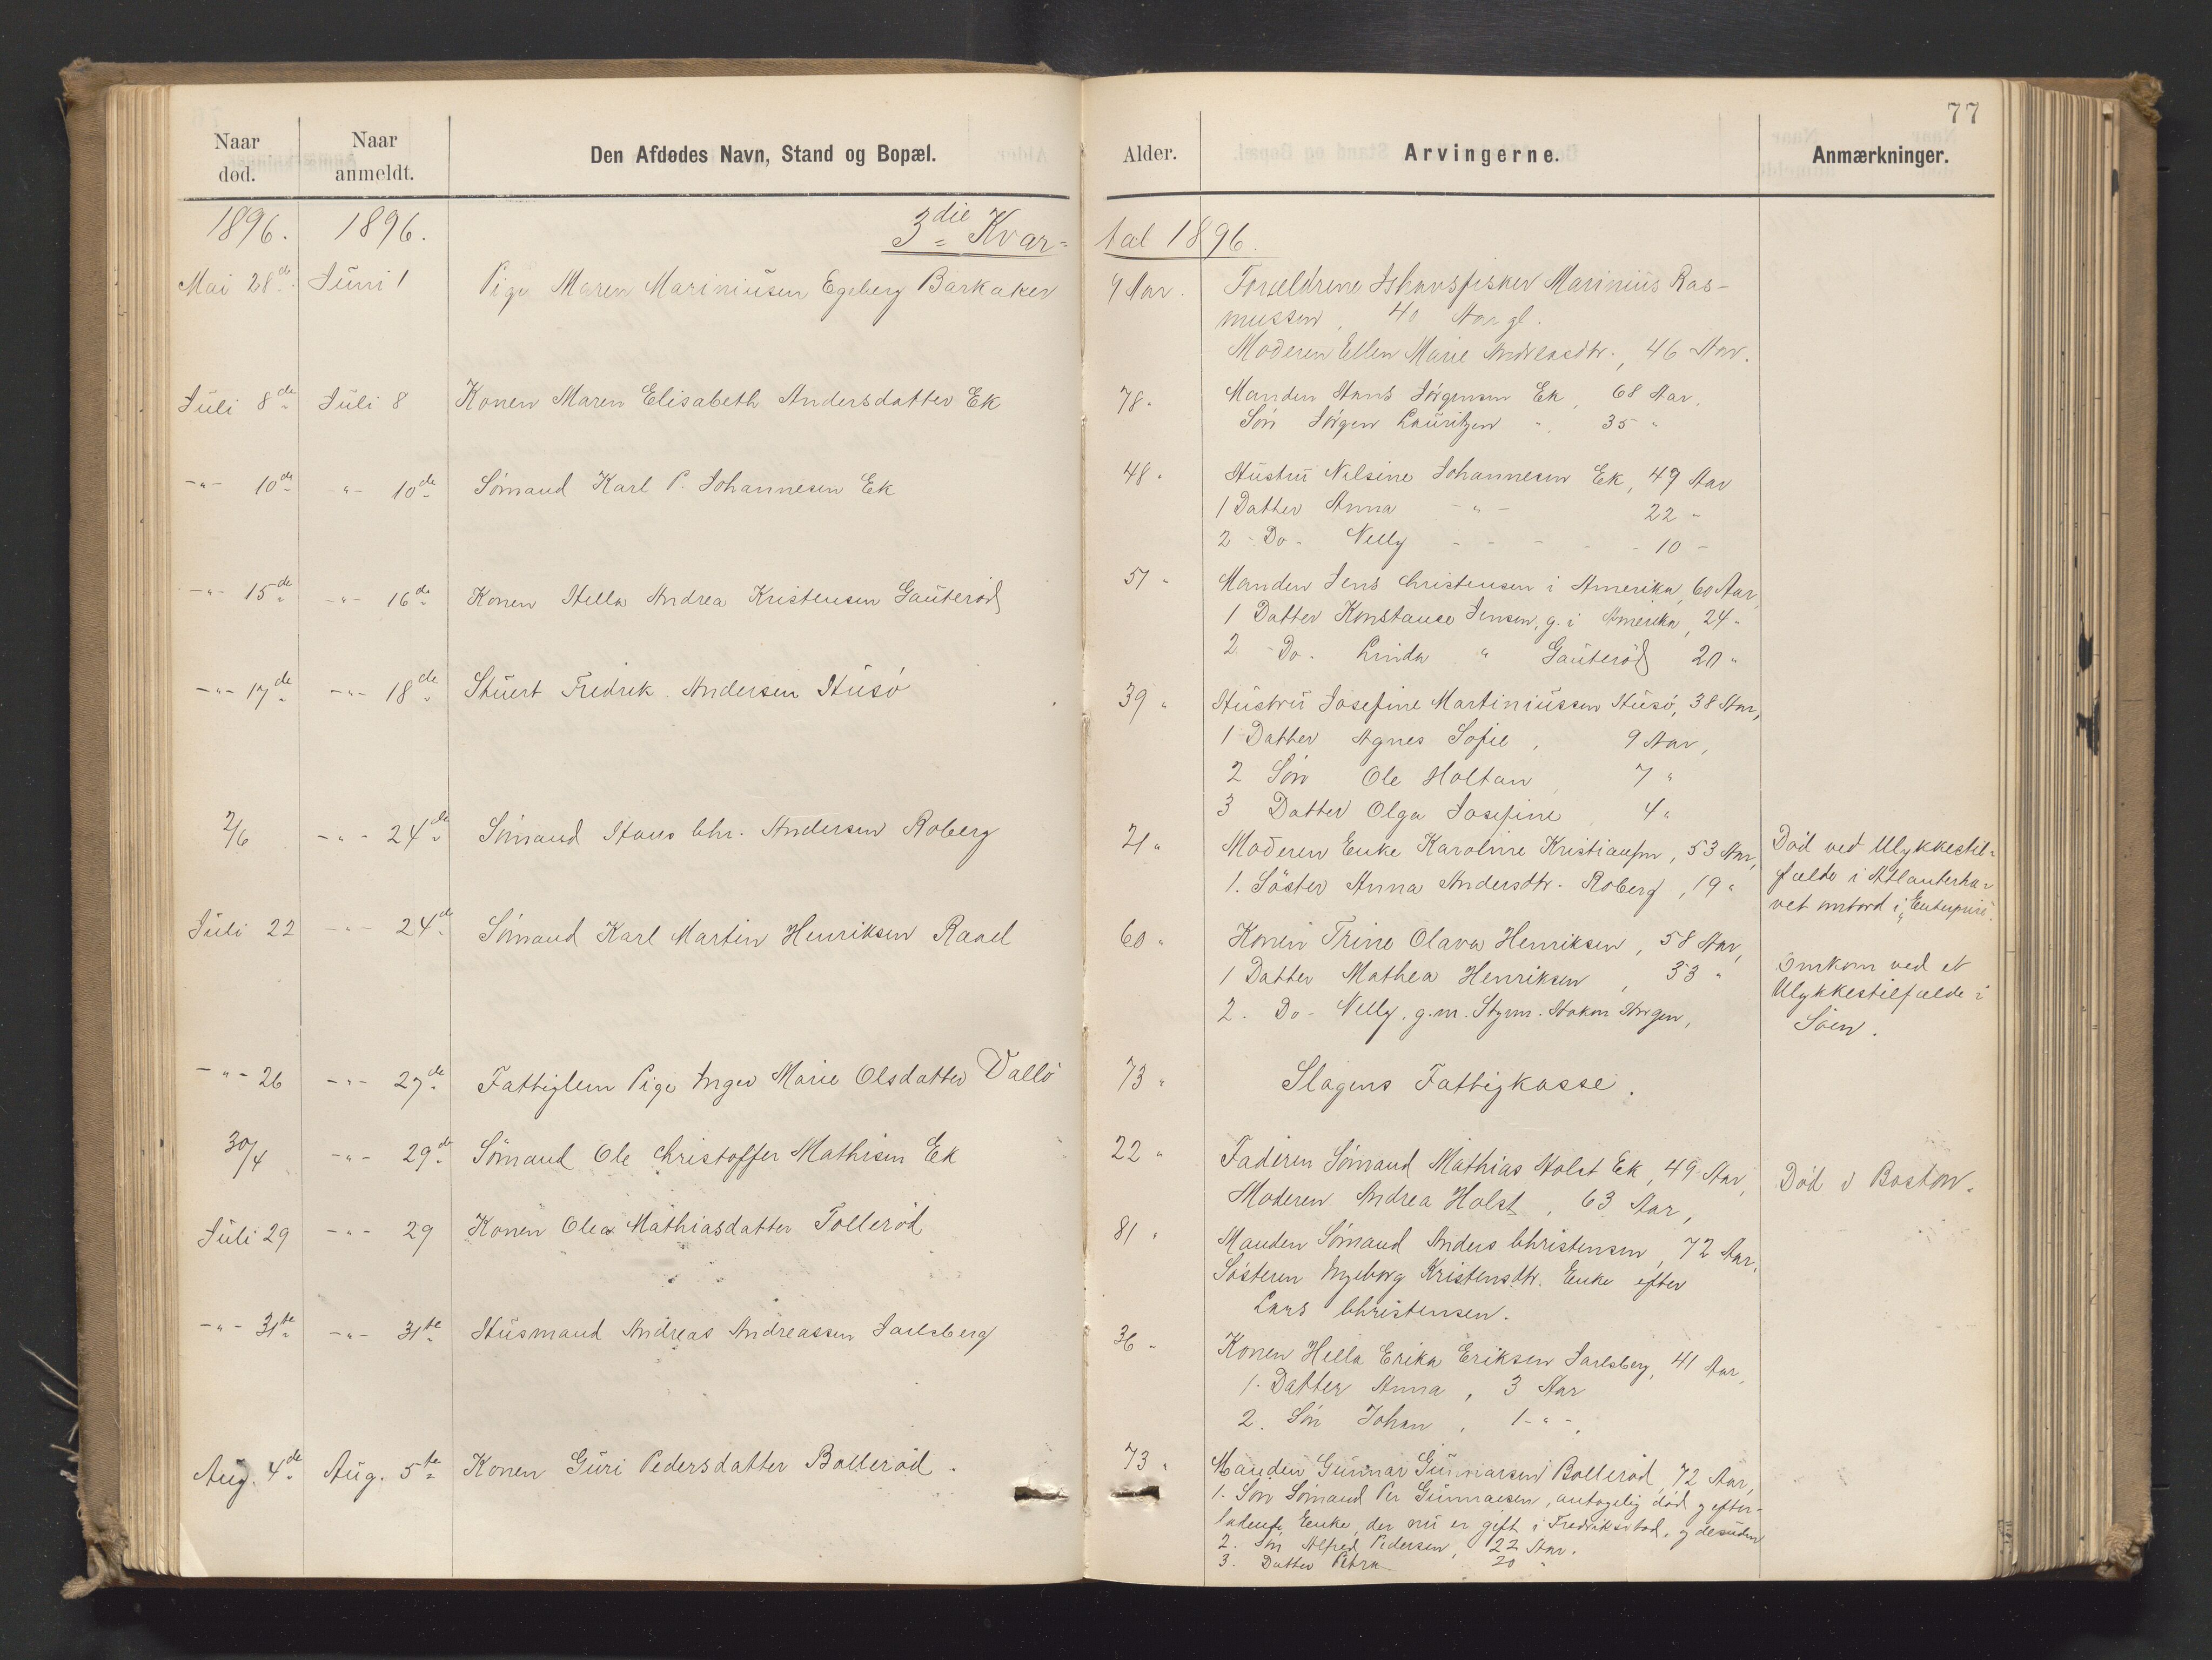 77
Naar død.
Naar anmeldt.
Den Afdødes Navn, Stand og Bopæl.
Alder.
Arvingerne.
Anmærkninger.
1896. 1896. 3die Kvar-tal 1896.
Mai 28de Juni 1 Pige Maren Mariniusen Egeberg Barkaker 9 Aar. Forældrene Ishavsfisker Marinius Ras-
mussen, 40 Aar gl.
Moderen Ellen Marie Andreasdtr., 46 Aar.
Juli 8de Juli 8 Konen Maren Elisabeth Andersdatter Ek 78 " Manden Hans Jørgensen Ek, 68 Aar.
Søn Jørgen Lauritzen " 35 "
-"- 10de -"- 10de Sömand Karl P. Johannesen Ek 48 " Hustru Nilsine Johannesen Ek, 49 Aar
1 Datter Anna -"- 22 "
2 - Do - Nelly - - - - - 10 -
-"- 15de -"- 16de Konen Hella Andrea Kristensen Gauterød 57 " Manden Jens Christensen i Amerika, 60 Aar,
1 Datter Konstance Jensen, g. i Amerika, 24 "
2 - Do. Linda " Gauterød 20 "
-"- 17de -"- 18de Stuert Fredrik Andersen Husö 39 " Hustru Josefine Martiniussen Husö, 38 Aar,
1 Datter Agnes Sofie, 9 Aar,
2 Søn Ole Holtan, 7 "
3 Datter Olga Josefine, 4 "
2/6 -"- 24de Sömand Hans Chr. Andersen Roberg 21 " Moderen Enke Karoline Kristiansen, 53 Aar,
1. Söster Anna Andersdtr. Roberg, 19 "
Död ved Ulykkestil-
fælde i Atlanterha-
vet ombord i "Enterprise".
Juli 22 -"- 24de Sömand Karl Martin Henriksen Rael 60 " Konen Trine Olava Henriksen, 58 Aar,
1 Datter Mathea Henriksen, 33 "
2. Do - Nelly, g. m. Styrm. Hakon
Omkom ved et
Ulykkestilfælde i
Söen.
-"- 26 -"- 27de Fattiglem Pige Inger Marie Olsdatter Vallö 73 " Slagens Fattigkasse.
30/4 -"- 29de Sömand Ole Christoffer Mathisen Ek 22 " Faderen Sömand Mathias Holst Ek, 49 Aar,
Moderen Andrea Holst, 63 Aar,
Död i Boston.
Juli 29 -"- 29 Konen Olea Mathiasdatter Tollerød 81 " Manden Sömand Anders Christensen, 72 Aar,
Søsteren Ingeborg Kristensdtr. Enke efter
Lars Christensen.
-"- 31te -"- 31te Husmand Andreas Andreassen Jarlsberg 36 " Konen Hella Erika Eriksen Jarlsberg, 41 Aar,
1. Datter Anna, 3 Aar
2. Søn Johan, 1 -"-
Aug. 4de Aug. 5te Konen Guri Pedersdatter Bollerød. 73 " Manden Gunnar Gunnarsen Bollerød, 72 Aar,
1. Søn Sömand Per Gunnarsen, antagelig död og efter-
ladende Enke, der nu er gift i Fredriksstad, og desuden
2. Søn Alfred Pedersen, 22 Aar.
3. Datter Petra 20 "